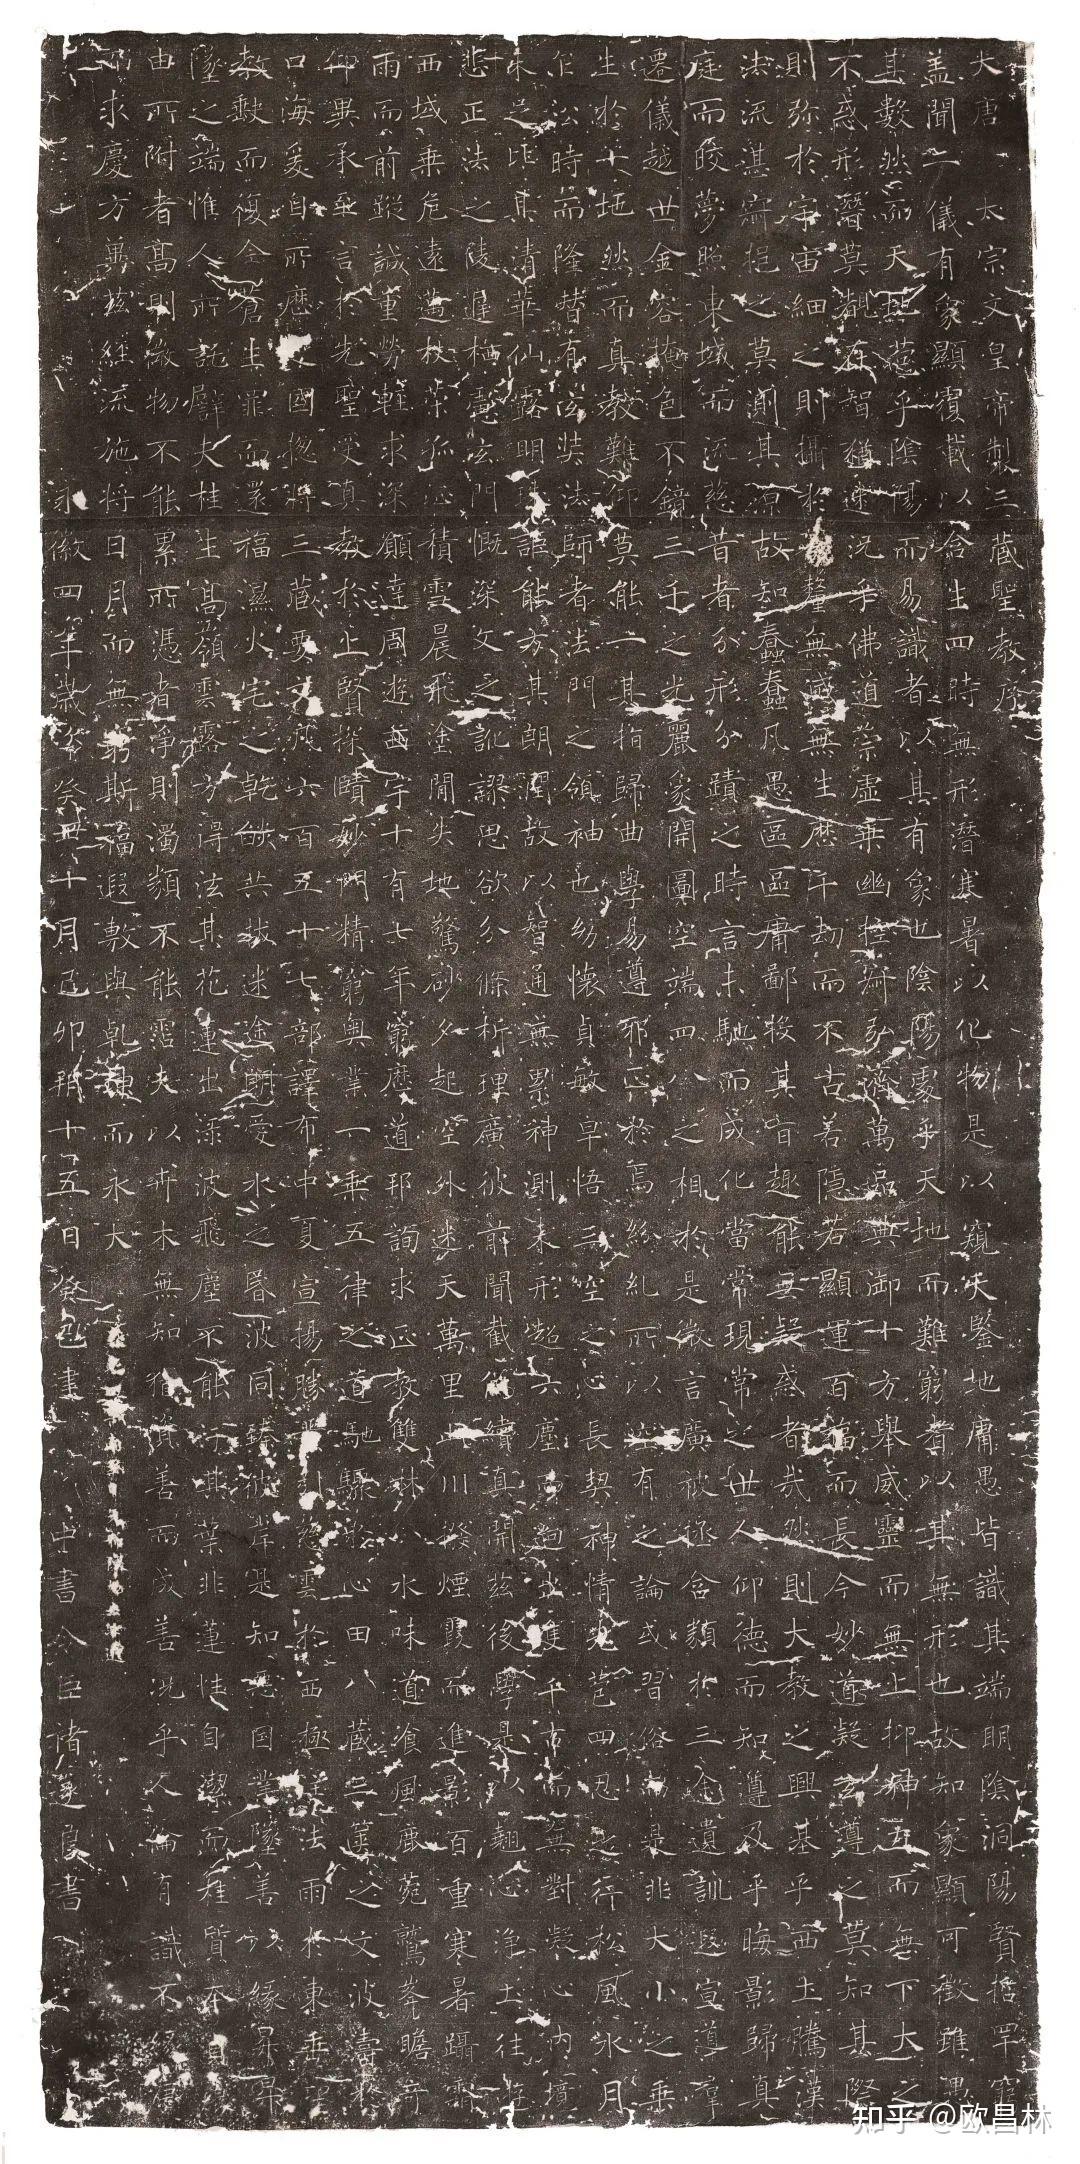 大唐太宗文皇帝製三藏聖教序
盖聞二儀有象顯覆載以含生四時無形潛寒暑以化物是以窺天鑒地庸愚皆識其端明陰洞陽賢哲罕窮
其數然而天地苞乎陰陽而易識者以其有象也陰陽處乎天地而難窮者以其無形也故知象顯可徵雖愚
不惑形潛莫覩在智猶迷況乎佛道崇虛乘幽控寂弘濟萬品典御十方舉威靈而無上抑神力而無下大之
則弥於宇宙細之則攝於豪釐無滅無生歷千劫而不古若隱若顯運百福而長今妙道凝玄遵之莫知其際
法流湛寂挹之莫測其源故知蠢蠢凡愚區區庸鄙投其旨趣能無疑惑者哉然則大教之興基乎西土騰漢
庭而皎夢照東域而流慈昔者分形分蹟之時言未馳而成化當常現常之世人仰德而知遵及乎晦影歸真
遷儀越世金容掩色不鏡三千之光麗象開圖空端四八之相於是微言廣被拯含類於三途遺訓遐宣導羣
生於十地然而真教難仰莫能一其指歸曲學易遵邪正於焉紛糺所以空有之論或習俗而是非大小之乘
乍沿時而隆替有玄奘法師者法門之領袖也幼懷貞敏早悟三空之心長契神情先苞四忍之行松風水月
未足比其清華仙露明珠詎能方其朗潤故以智通無累神測未形超六塵而迥出隻千古而無對凝心內境
悲正法之陵遲栖慮玄門慨深文之訛謬思欲分條析理廣彼前聞截偽續真開茲後學是以翹心淨土往遊
西域乘危遠邁杖策孤征積雪晨飛塗間失地驚砂夕起空外迷天萬里山川撥煙霞而進影百重寒暑躡霜
雨而前蹤誠重勞輕求深願達周遊西宇十有七年窮歷道邦詢求正教雙林八水味道飡風鹿菀鷲峯瞻奇
仰異承至言於先聖受真教於上賢探賾妙門精窮奧業一乘五律之道馳驟於心田八藏三篋之文波濤於
口海爰自所歷之國揔將三藏要文凡六百五十七部譯布中夏宣揚勝業引慈雲於西極注法雨於東垂聖
教缺而復全蒼生罪而還福濕火宅之乾燄共拔迷途朗愛水之昏波同臻彼岸是知惡因業墜善以緣昇昇
墜之端惟人所託譬夫桂生高嶺雲露方得泫其花蓮出淥波飛塵不能污其葉非蓮性自潔而桂質本貞良
由所附者高則微物不能累所憑者淨則濁類不能霑夫以卉木無知猶資善而成善況乎人倫有識不緣慶
而求慶方冀茲經流施將日月而無窮斯福遐敷與乾坤而永大
永徽四年歲次癸丑十月己卯朔十五日癸巳建 中書令臣褚遂良書
知乎 @欧昌林